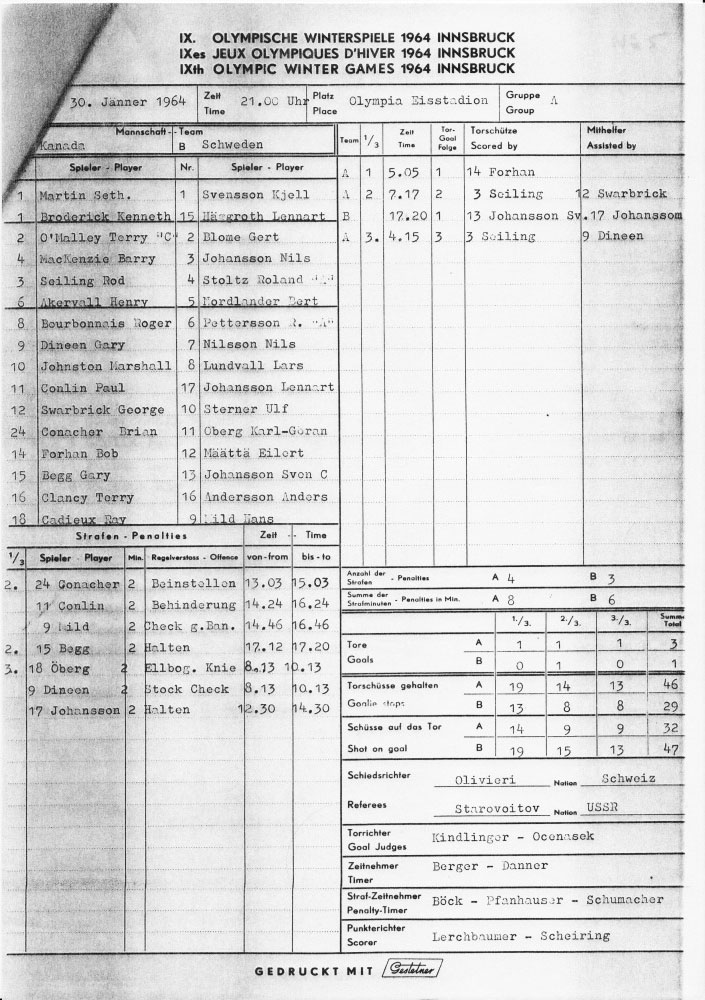 IX. OLYMPISCHE WINTERSPIELE 1964 INNSBRUCK
IXes JEUX OLYMPIQUES D'HIVER 1964 INNSBRUCK
IXth OLYMPIC WINTER GAMES 1964 INNSBRUCK
30. Jänner 1964 Zeit Time 21.00 Uhr Platz Place Olympia Eisstadion Gruppe Group A
Mannschaft - Team
Kanada B Schweden
Spieler - Player Nr. Spieler - Player
1 Martin Seth. 1 Svensson Kjell
1 Broderick Kenneth 15 Häggroth Lennart
2 O'Malley Terry "C" 2 Blome Gert
4 MacKenzie Barry 3 Johansson Nils
3 Seiling Rod 4 Stoltz Roland
6 Akervall Henry 5 Nordlander Bert
8 Bourbonnais Roger 6 Pettersson R. "A"
9 Dineen Gary 7 Nilsson Nils
10 Johnston Marshall 8 Lundvall Lars
11 Conlin Paul 17 Johansson Lennart
12 Swarbrick George 10 Sterner Ulf
24 Conacher Brian 11 Oberg Karl-Goran
14 Forhan Bob 12 Määttä Eilert
15 Begg Gary 13 Johansson Sven C
16 Clancy Terry 16 Andersson Anders
18 Cadieux Ray 9 Mild Hans
Team 1/3 Zeit Time Tor-Goal Folge Torschütze Scored by Mithelfer Assisted by
A 1 5.05 1 14 Forhan
A 2 7.17 2 3 Seiling 12 Swarbrick
B 17.20 1 13 Johansson Sv. 17 Johansson
A 3. 4.15 3 3 Seiling 9 Dineen
Strafen - Penalties Zeit - Time
1/3 Spieler - Player Min. Regelverstoss - Offence von-from bis-to
2. 24 Conacher 2 Beinstellen 13.03 15.03
11 Conlin 2 Behinderung 14.24 16.24
9 Mild 2 Check g.Ban. 14.46 16.46
2. 15 Begg 2 Halten 17.12 17.20
3. 18 Öberg 2 Ellbog. Knie 8.13 10.13
9 Dineen 2 Stock Check 8.13 10.13
17 Johansson 2 Halten 12.30 14.30
Anzahl der Strafen - Penalties A 4 B 3
Summe der Strafminuten - Penalties in Min. A 8 B 6
1./3. 2./3. 3./3. Summe Total
Tore A 1 1 1 3
Goals B 0 1 0 1
Torschüsse gehalten A 19 14 13 46
Goalie stops B 13 8 8 29
Schüsse auf das Tor A 14 9 9 32
Shot on goal B 19 15 13 47
Schiedsrichter Olivieri Nation Schweiz
Referees Starovoitov Nation USSR
Torrichter Goal Judges Kindlinger - Ocenasek
Zeitnehmer Timer Berger - Danner
Straf-Zeitnehmer Penalty-Timer Böck - Pfanhauser - Schumacher
Punkterichter Scorer Lerchbaumer - Scheiring
GEDRUCKT MIT Gestetner